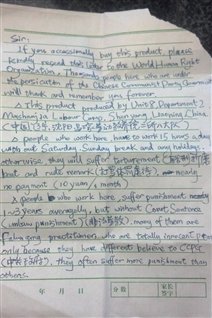 Sir:
If you occassionally buy this product, please
kindly resend this letter to the World Human Right
Organization. Thousands people here who are under
the persicution of the Chinese Communist Party Government
will thank and remember you forever.
This product produced by Unit 8, Department 2
Machanjia Labour Camp, Shenyang, Liaoning, China
(中国,辽宁,沈阳,马三家劳动教养院二所八大队)
people who work here, have to work 15 hours a day
with out Saturday, Sunday break and any holidays,
otherwise, they will suffer torturement
but and rude remark nearly
no payment (10 yuan/1 month)
people who work here, suffer punishment nearly
1~3 years averagelly, but without Court Sentence
(unlaw punishment) many of them are
Falun gong practitioners, who are totally innocent people
only because they have different believe to CCPG
they often suffer more punishment than
others.
年 月 日
分数
家长
签字